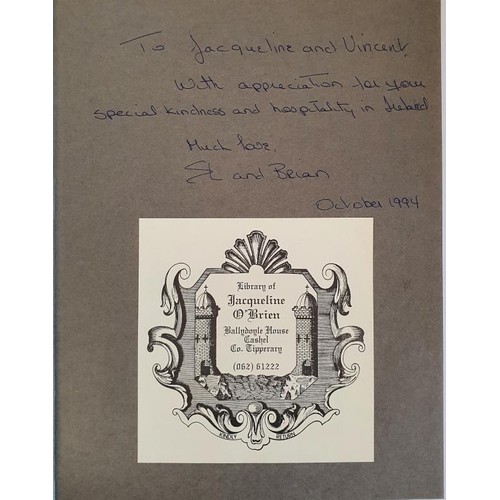 To Jacqueline and Vincent,
With appreciation for your
special kindness and hospitality in Ireland
Much love,
and Brian
October 1994
Library of
Jacqueline
O'Brien
Ballydoyle House
Cashel
Co. Tipperary
(062) 61222
KINDLY RETURN